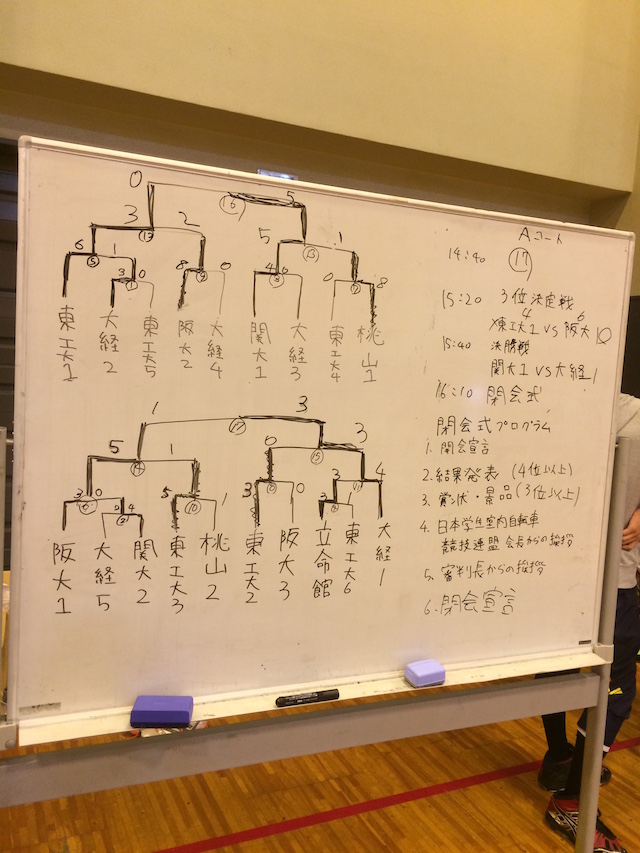 0 5
⑯
3 2 5 1
⑫ ⑬
6 1 8 0 4 8
⑤ 3 0 ⑧ ⑦
東工大1
大経2
東工大5
阪大2
大経4
関大1
大経3
東工大4
桃山1
1 3
⑰
5 1 0 3
⑭ ⑮
3 0 5 1 3 0 3 4
⑩ ⑪
阪大1
大経5
関大2
東工大3
桃山2
東工大2
阪大3
立命館
東工大6
大経1
Aコート
14:40 ⑰
15:20 3位決定戦
4 6
東工大1 VS 阪大1
15:40 決勝戦
関大1 VS 大経1
16:10 閉会式
閉会式プログラム
1. 開会宣言
2. 結果発表 (4位以上)
3. 賞状・景品 (3位以上)
4. 日本学生室内自転車
競技連盟 会長からの挨拶
5. 審判長からの挨拶
6. 閉会宣言